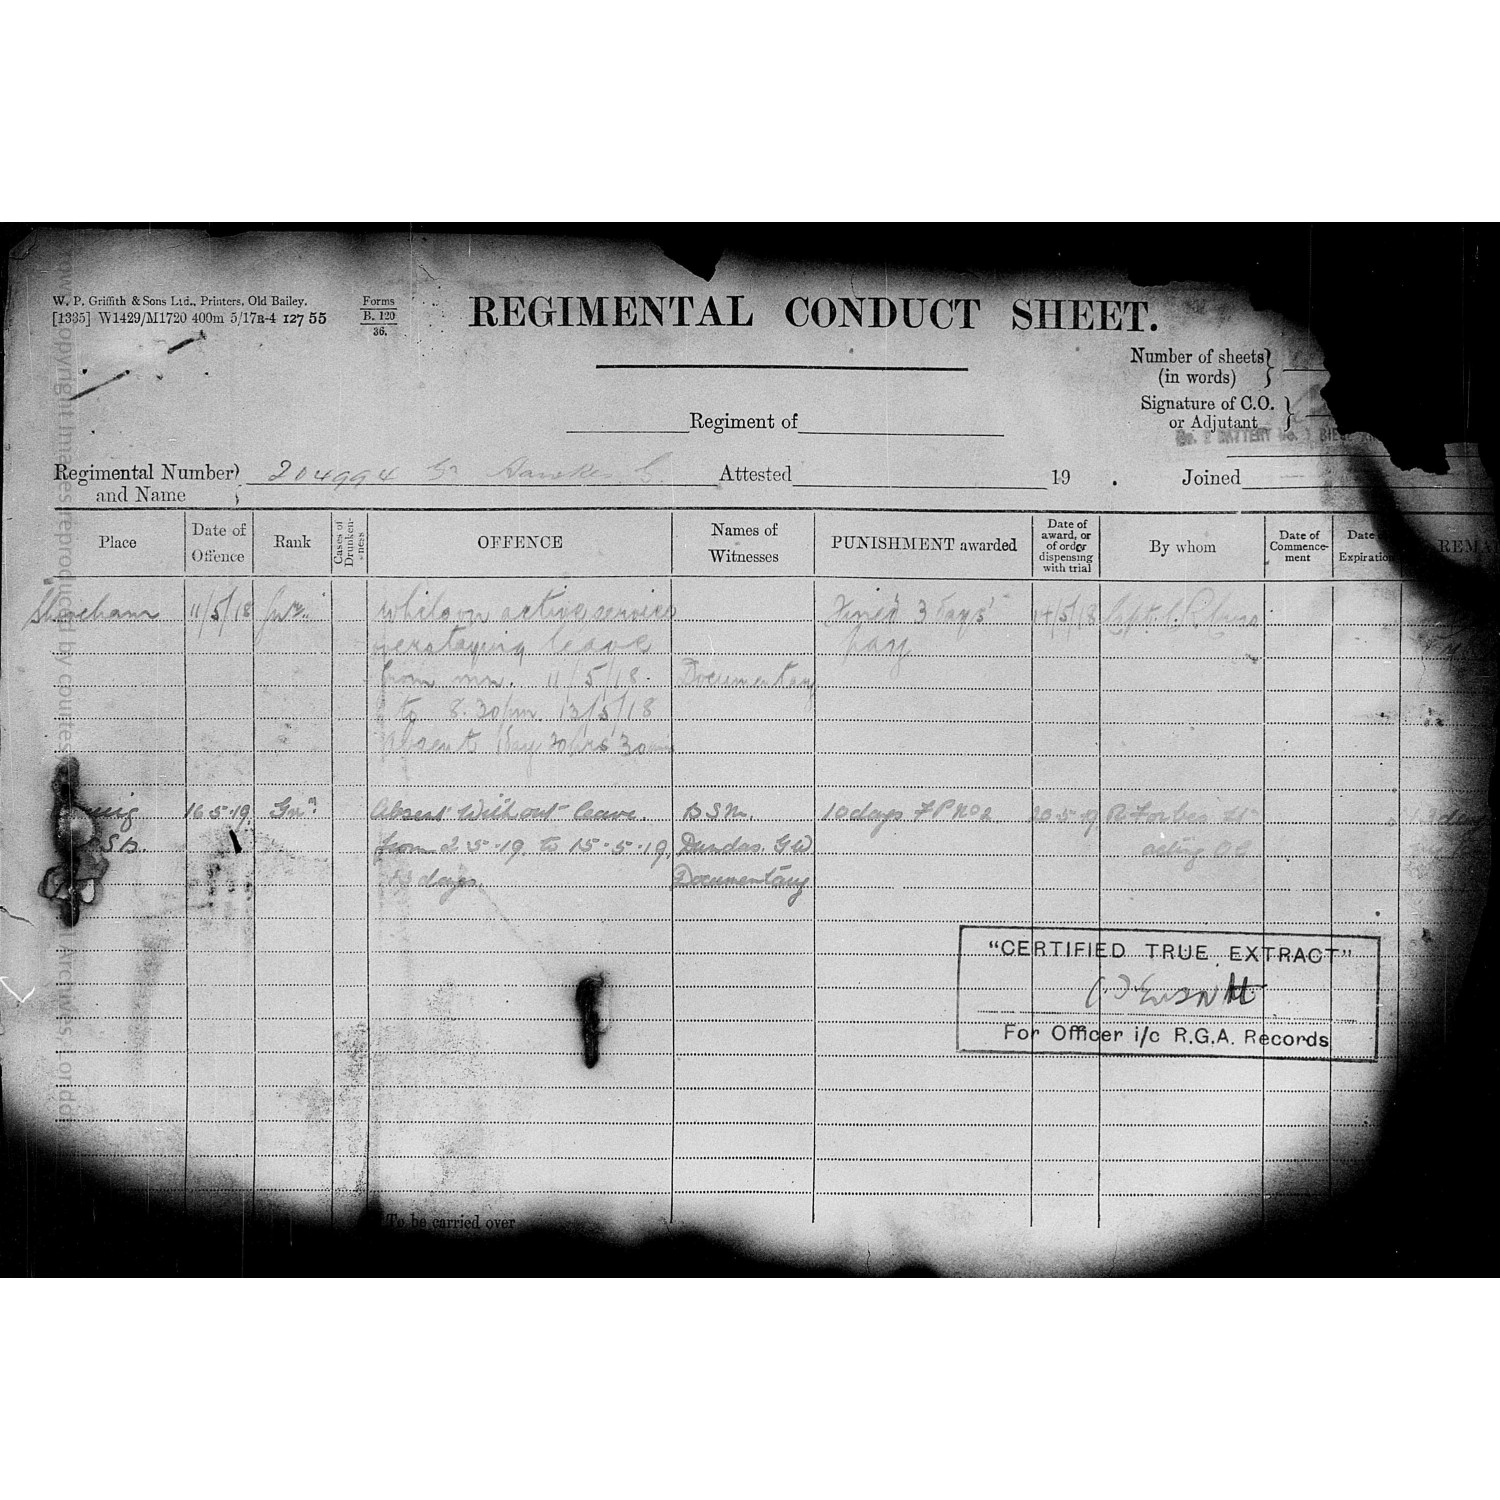 W. P. Griffith & Sons Ltd., Printers, Old Bailey.
[1335] W1429/M1720 400m 5/17R-4 127 55
Forms
B. 120
36.
REGIMENTAL CONDUCT SHEET.
Number of sheets
(in words)
Signature of C.O.
or Adjutant
Regiment of
Regimental Number
and Name
204994 Gr Hawkes G.
Attested 19 .
Joined
Place
Date of
Offence
Rank
Cases of
Drunken-
ness
OFFENCE
Names of
Witnesses
PUNISHMENT awarded
Date of
award, or
of order
dispensing
with trial
By whom
Date of
Commence-
ment
Date of
Expiration
REMA
Shoreham 11/5/18 Gnr. Whilst on active service Fined 3 days' 14/5/18 Capt.
overstaying leave pay
from mn. 11/5/18. Documentary
to 8.30pm. 13/5/18
Absent 1 day 20 hrs 30
16-5-19 Gnr. Absent Without leave. B.S.M. 10 days F P No 2 20-5-19 R. Forbes Lt
from 2-5-19 to 15-5-19, Dundas. G W acting O C
13 days. Documentary
"CERTIFIED TRUE EXTRACT"
For Officer i/c R.G.A. Records
To be carried over